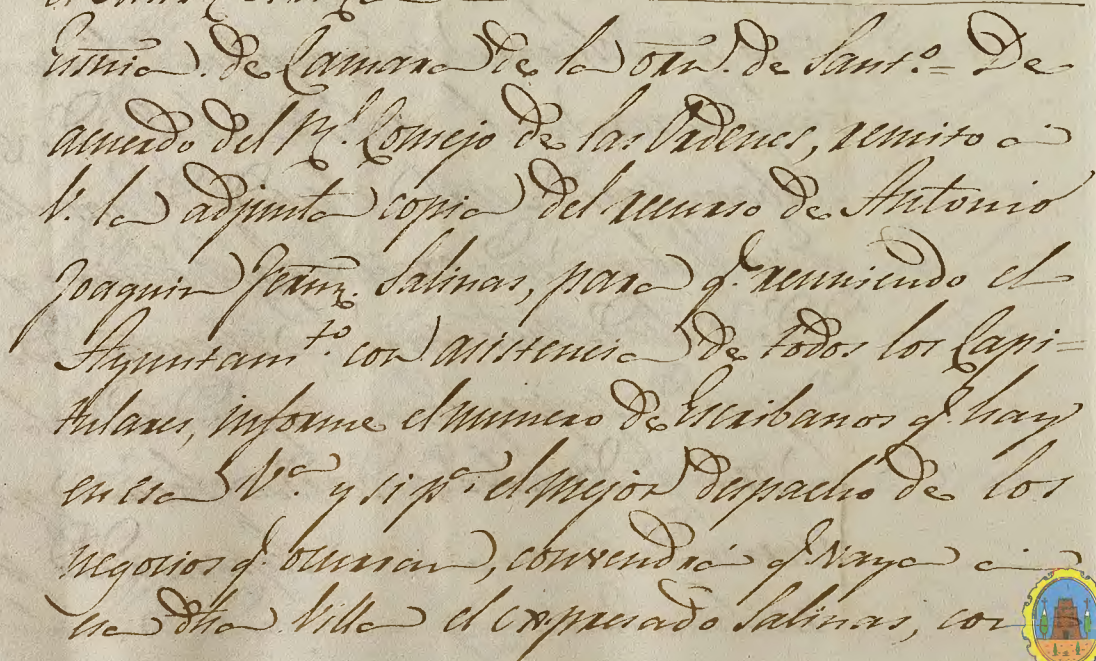 Essnia. de Camara de la orn. de Sant.º = De
acuerdo del Rl. Consejo de las Ordenes, remito á
V. la adjunta copia del recurso de Antonio
Joaquin Fernz. Salinas, para q.e reuniendo el
Ayuntam.to con asistencia de todos los Capi=
tulares, informe el numero de Escribanos q.e hay
en esa V.a y si p.a el mejor despacho de los
negocios q.e ocurran, convendrá q.e vaya á
esa dha Villa el expresado Salinas, con